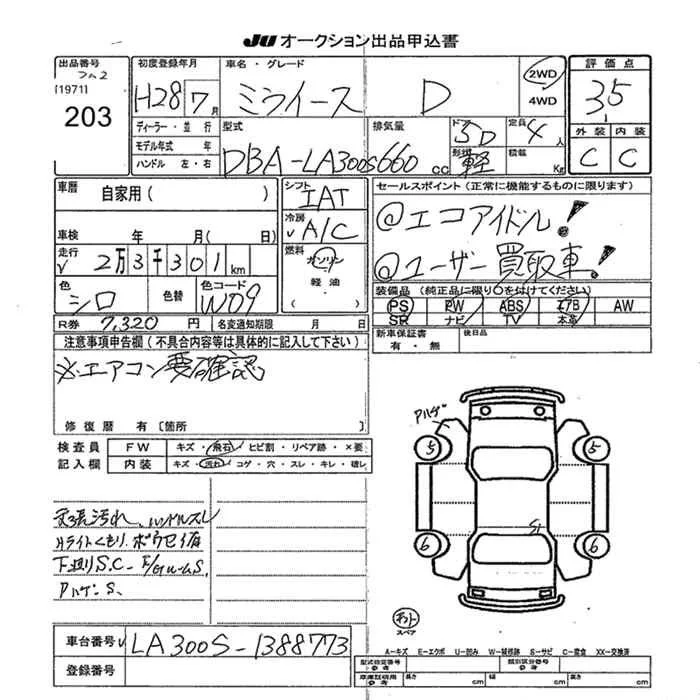 JU オークション出品申込書
出品番号
[1971]
203
初度登録年月
H28 7月
車名・グレード
ミライース D
2WD
4WD
評価点
3.5
外装 内装
C C
ディーラー・並行
モデル年式 年
ハンドル 左・右
型式
DBA-LA300S
排気量
660cc
ドア
5D
形状
軽
定員
4人
積載
Kg
車歴
自家用( )
車検 年 月( 日)
走行
2万3千301km
色
シロ
色替
色コード
W09
シフト
IAT
冷房
A/C
燃料
ガソリン
軽油
セールスポイント(正常に機能するものに限ります)
@エコアイドル!
@ユーザー買取車!
装備品(純正品に限り○を付けてください)
PS PW ABS エアB AW
SR ナビ TV 本革
新車保証書
有・無
後日品
R券 7,320円
名変通知期限 月 日
注意事項申告欄(不具合内容等は具体的に記入して下さい)
※エアコン要確認
修復歴 有〔箇所 〕
検査員
記入欄
FW キズ・飛石・ヒビ割・リペア跡・×要
内装 キズ・汚れ・コゲ・穴・スレ・キレ・破レ
内張汚れ、ハンドルスレ
Hライトくもり、ボウセイ有
下廻りS.C- E/gルームS,
アハゲ
5 5
6 6
S1
スペア
車台番号 LA300S-1388773
登録番号
A-キズ E-エクボ U-凹み W-補修跡 S-サビ C-腐食 XX-交換済
型式指定番号
参考
類別区分番号
参考
車庫証明用
参考
長さ cm
幅 cm
高さ cm